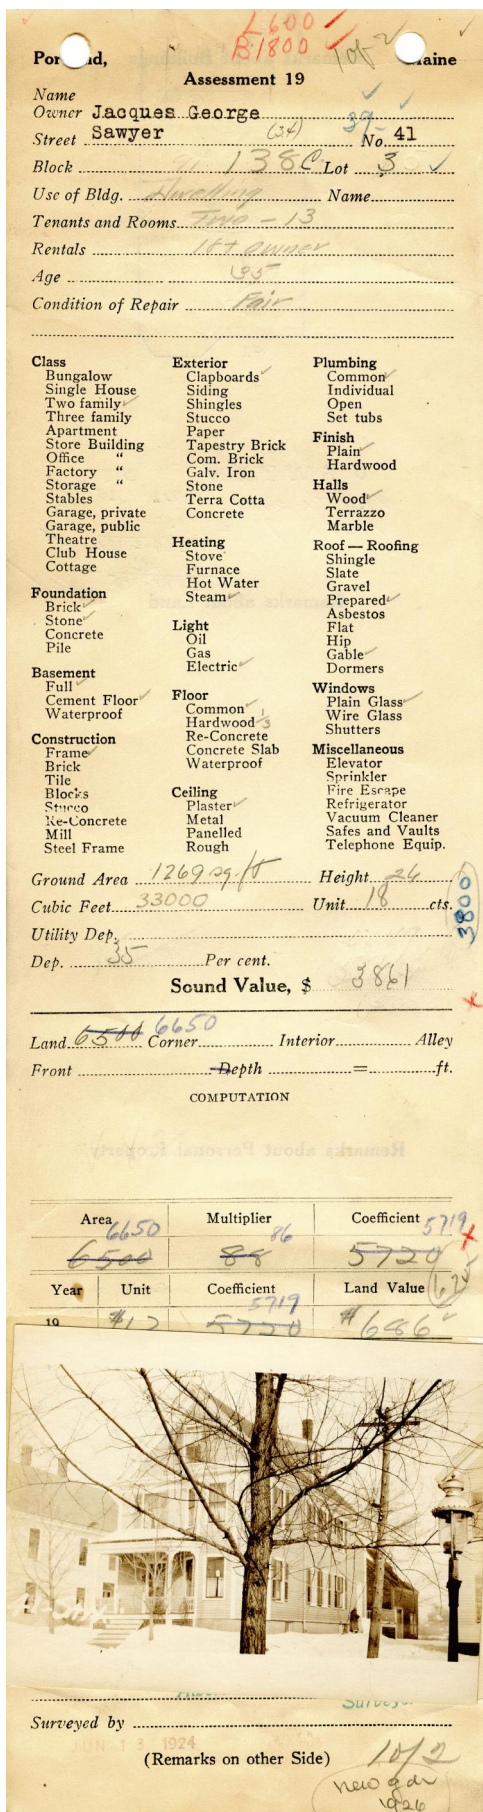 L 600
B 1800
1 of 2
Portland, Maine
Assessment 19
Name
Owner Jacques George
Street Sawyer (34) 39- No. 41
Block 138C Lot 3
Use of Bldg. Dwelling Name
Tenants and Rooms Two - 13
Rentals 1st owner
Age 35
Condition of Repair Fair
Class
Bungalow
Single House
Two family ✓
Three family
Apartment
Store Building
Office "
Factory "
Storage "
Stables
Garage, private
Garage, public
Theatre
Club House
Cottage
Foundation
Brick ✓
Stone ✓
Concrete
Pile
Basement
Full ✓
Cement Floor ✓
Waterproof
Construction
Frame ✓
Brick
Tile
Blocks
Stucco
Re-Concrete
Mill
Steel Frame
Exterior
Clapboards ✓
Siding
Shingles
Stucco
Paper
Tapestry Brick
Com. Brick
Galv. Iron
Stone
Terra Cotta
Concrete
Heating
Stove
Furnace
Hot Water
Steam ✓
Light
Oil
Gas
Electric ✓
Floor
Common ✓
Hardwood ✓ 1/3
Re-Concrete
Concrete Slab
Waterproof
Ceiling
Plaster ✓
Metal
Panelled
Rough
Plumbing
Common ✓
Individual
Open
Set tubs
Finish
Plain ✓
Hardwood
Halls
Wood ✓
Terrazzo
Marble
Roof — Roofing
Shingle
Slate
Gravel
Prepared ✓
Asbestos
Flat
Hip
Gable ✓
Dormers
Windows
Plain Glass ✓
Wire Glass
Shutters
Miscellaneous
Elevator
Sprinkler
Fire Escape
Refrigerator
Vacuum Cleaner
Safes and Vaults
Telephone Equip.
Ground Area 1269 sq. ft Height 26
Cubic Feet 33000 Unit 18 cts.
3800
Utility Dep.
Dep. 35 Per cent.
Sound Value, $ 3861
Land 6500 6650 Corner Interior Alley
Front Depth = ft.
COMPUTATION
Area Multiplier Coefficient
6650 86 5719
6500 88 5720
Year Unit Coefficient Land Value
5719
19 $12 5720 $686
Surveyor
Surveyed by
JUN 13 1924
(Remarks on other Side)
1 of 2
new gar
1926